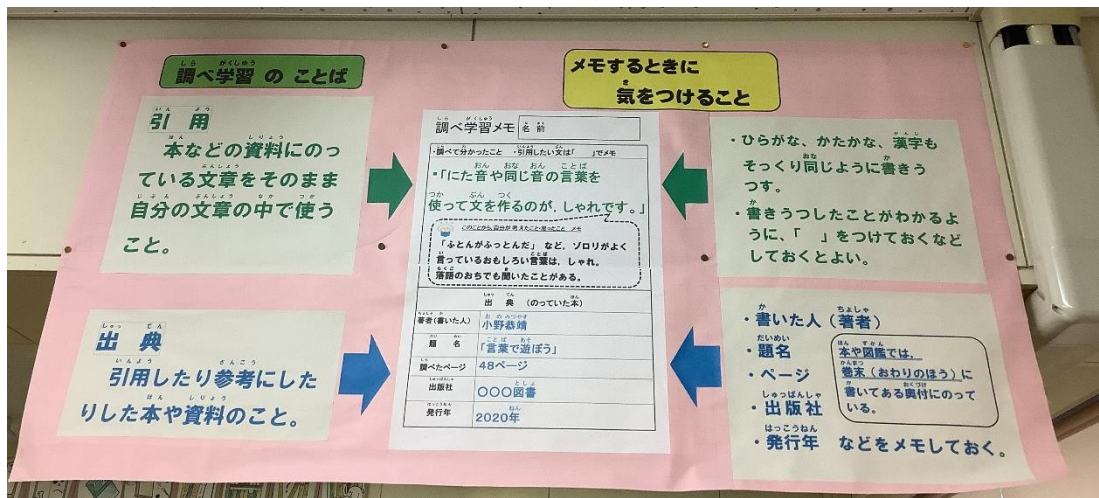 調べ学習 の ことば
引用
本などの資料にのっ
ている文章をそのまま
自分の文章の中で使う
こと。
出典
引用したり参考にした
りした本や資料のこと。
調べ学習メモ 名前
・調べて分かったこと ・引用したい文は「 」でメモ
・「にた音や同じ音の言葉を
使って文を作るのが、しゃれです。」
このことから、自分が考えたこと・思ったこと メモ
「ふとんがふっとんだ」など、ゾロリがよく
言っているおもしろい言葉は、しゃれ。
落語のおちでも聞いたことがある。
出典 (のっていた本)
著者(書いた人) 小野恭靖
題名 「言葉で遊ぼう」
調べたページ 48ページ
出版社 〇〇〇図書
発行年 2020年
メモするときに
気をつけること
・ひらがな、かたかな、漢字も
そっくり同じように書きう
つす。
・書きうつしたことがわかるよ
うに、「 」をつけておくなど
しておくとよい。
・書いた人(著者)
・題名
・ページ
・出版社
・発行年 などをメモしておく。
本や図鑑では、
巻末(おわりのほう)に
書いてある奥付にのって
いる。